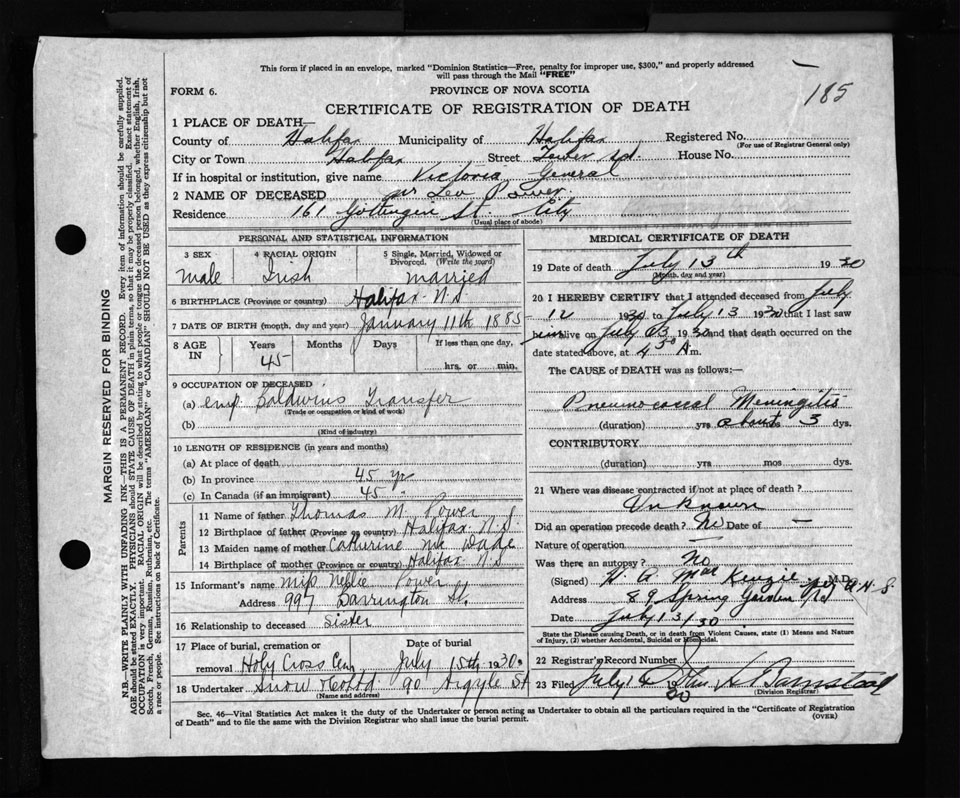 This form if placed in an envelope, marked "Dominion Statistics—Free, penalty for improper use, $300," and properly addressed
will pass through the Mail "FREE"
185
FORM 6.
PROVINCE OF NOVA SCOTIA
CERTIFICATE OF REGISTRATION OF DEATH
1 PLACE OF DEATH—
County of Halifax Municipality of Halifax Registered No.
(For use of Registrar General only)
City or Town Halifax Street Tower Rd House No.
If in hospital or institution, give name Victoria General
2 NAME OF DECEASED Mr Leo Power.
Residence 161 Gottingen St. City
(Usual place of abode)
PERSONAL AND STATISTICAL INFORMATION
3 SEX male
4 RACIAL ORIGIN Irish
5 Single, Married, Widowed or Divorced. (Write the word) married
6 BIRTHPLACE (Province or country) Halifax N.S.
7 DATE OF BIRTH (month, day and year) January 11th 1885
8 AGE IN Years 45 Months Days If less than one day, hrs. or min.
9 OCCUPATION OF DECEASED
(a) emp. Baldwins Transfer
(Trade or occupation or kind of work)
(b)
(Kind of industry)
10 LENGTH OF RESIDENCE (in years and months)
(a) At place of death
(b) In province 45 yr
(c) In Canada (if an immigrant) 45 "
Parents
11 Name of father Thomas M. Power
12 Birthplace of father (Province or country) Halifax N.S.
13 Maiden name of mother Catherine Mc Dade
14 Birthplace of mother (Province or country) Halifax N.S
15 Informant's name Miss Nellie Power
Address 997 Barrington St.
16 Relationship to deceased Sister
17 Place of burial, cremation or removal Holy Cross Cem Date of burial July 15th 1930
18 Undertaker Snow & Co Ltd 90 Argyle St
(Name and address)
MEDICAL CERTIFICATE OF DEATH
19 Date of death July 13th 1930
(Month, day and year)
20 I HEREBY CERTIFY that I attended deceased from July
12 1930 to July 13 1930 that I last saw
him alive on July 13 1930 and that death occurred on
date stated above, at 4 30 A m.
The CAUSE of DEATH was as follows:
Pneumococcal Meningitis
(duration) yrs about 3 dys.
CONTRIBUTORY
(duration) yrs mos dys.
21 Where was disease contracted if not at place of death?
Unknown
Did an operation precede death? No Date of —
Nature of operation —
Was there an autopsy? No
(Signed) H. A. MacKenzie M.D.
Address 89 Spring Garden Rd
Date July 13/30.
State the Disease causing Death, or in death from Violent Causes, state (1) Means and Nature
of Injury, (2) whether Accidental, Suicidal or Homicidal.
22 Registrar's Record Number
23 Filed July Barnstead
(Division Registrar)
Sec. 46—Vital Statistics Act makes it the duty of the Undertaker or person acting as Undertaker to obtain all the particulars required in the "Certificate of Registration
of Death" and to file the same with the Division Registrar who shall issue the burial permit.
(OVER)
MARGIN RESERVED FOR BINDING
N.B.—WRITE PLAINLY WITH UNFADING INK—THIS IS A PERMANENT RECORD. Every item of information should be carefully supplied.
AGE should be stated EXACTLY. PHYSICIANS should STATE CAUSE OF DEATH in plain terms, so that it may be properly classified. Exact statement of
OCCUPATION is very important. RACIAL ORIGIN will be described by stating to what people or tongue the deceased person belonged, whether English, Irish,
Scotch, French, German, Russian, Ruthenian, etc. The terms "AMERICAN" or "CANADIAN" SHOULD NOT BE USED as they express citizenship but not
a race or people. See instructions on back of Certificate.